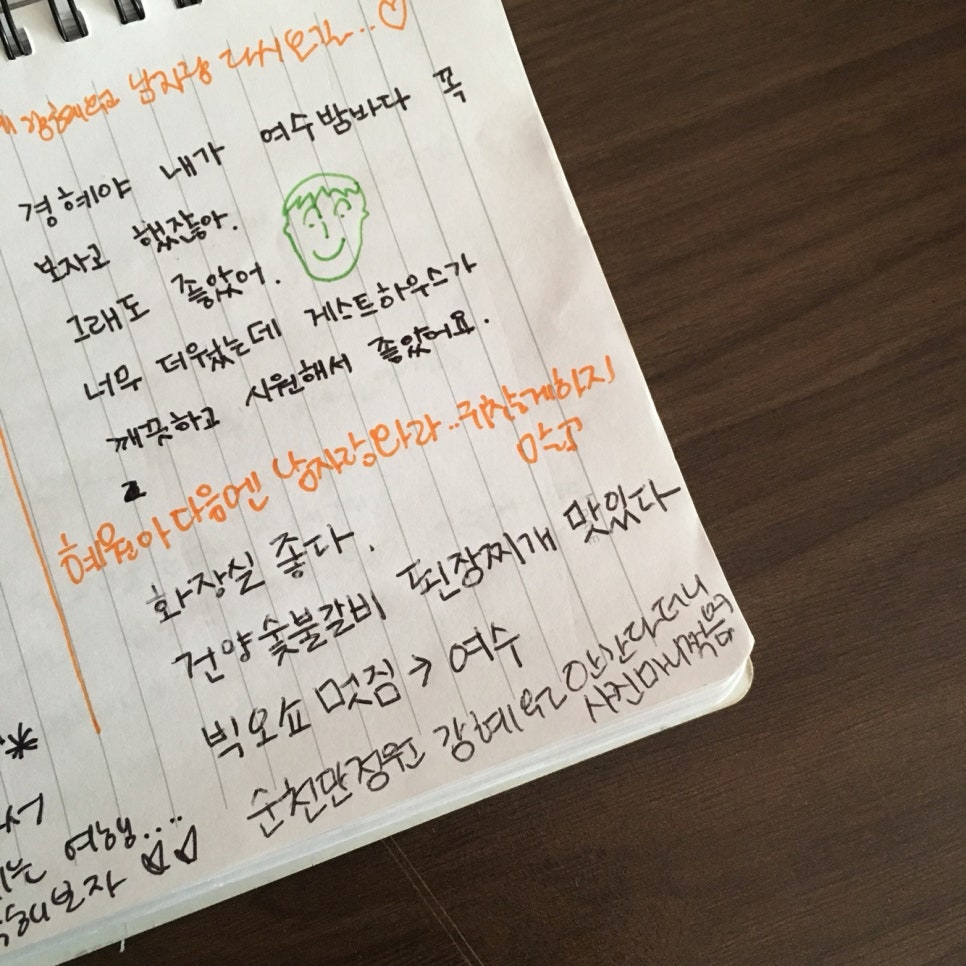 남자랑 다시오길..♡
경혜야 내가 여수밤바다 꼭
보자고 했잖아.
그래도 좋았어.
너무 더웠는데 게스트하우스가
깨끗하고 시원해서 좋았어요.
혜원아 다음엔 남자랑와라..귀찮게하지
말고
화장실 좋다.
건양숯불갈비 된장찌개 맛있다
빅오쇼 멋짐 → 여수
순천만정원 강혜원 안간다더니
사진마니찍음
여행....
해보자